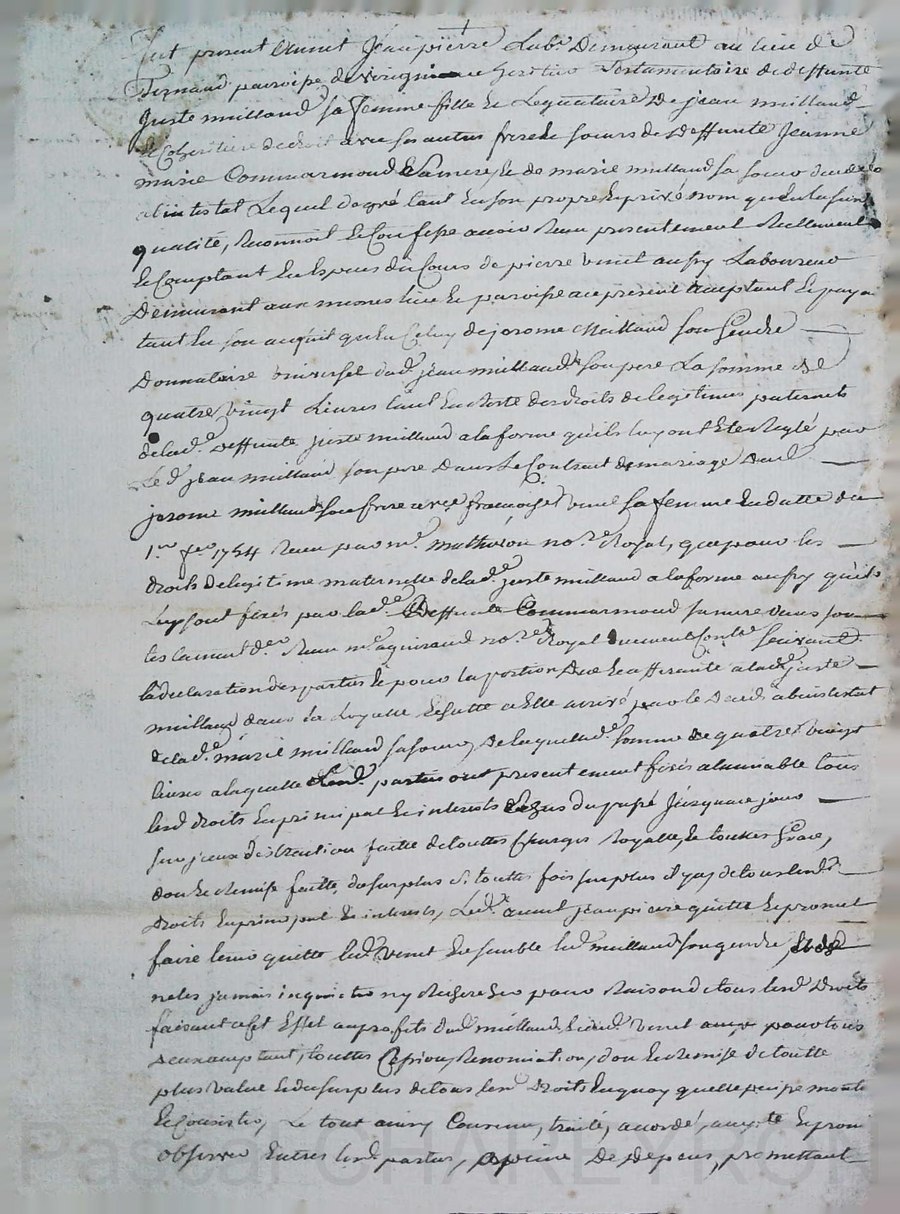 fut present Annet Jean pierre Lab.r Demeurant au lieu de
fernand paroisse de heritier Testamentaire de deffunte
Juste mialland sa femme fille et Legataire De jean mialland
et Coheritiere de droit avec ses autres freres et soeurs de Deffunte Jeanne
marie Commarmond sa mere, et de marie mialland sa soeur decedée
abintestat Lequel de gré tant En son propre et privé nom quen lad.
qualité, Reconnoit et Confesse avoir Receu presentement Reellement
et Comptant En Especes du Cours de pierre Vincent aussy Laboureur
Demeurant aux mesmes lieu et paroisse a ce present acceptant et paya
tant En son acquit qu'En Celuy de jerome Mialland son Gendre
Donnataire Universel dud. jean mialland son pere La somme de
quatre Vingt Livres tant En Reste des droits de legitimes paternels
de lad.e Deffunte juste mialland a la forme qu'ils luy ont Eté Reglé par
Le d. jean mialland son pere Dans Le Contrat de mariage dud.
jerome mialland son frere avec francoise Vincent sa femme En datte du
1.er 1754 Receu par m.e mathevon no.re Royal, que pour les
droits de legitime maternelle de lad.e juste mialland a la forme aussy qu'ils
Luy sont fixés par lad.e Deffunte Commarmond sa mere dans son
testament Receu m.e no.re Royal Suivant
la declaration des parties et pour la portion Due et afferante a lad.e juste
mialland dans la Echutte a Elle arrivé par le Deceds abintestat
de lad.e marie mialland sa soeur, De laquelle d.e somme de quatre Vingt
livres a laquelle Lesd. parties ont presentement fixés a lamiable tous
lesd. droits En principal et interests du passé jusqua ce jour
sur iceux distraction faitte de touttes Charges Royalles, et touttes Grace,
don et Remise faitte du surplus Si touttes fois surplus il y a, de tous lesd.
Droits En principal et interests, Led. annet jean pierre quitte et promet
faire tenir quitte led. Vincent Ensemble led. mialland son gendre,
ne les jamais inquietter ny Rechercher pour Raison de tous lesd. Droits
faisant a cet Effet au proffit dud. mialland, led. Vincent pour tous
Deux acceptant, touttes Cession, Renonciation, don et Remise de toutte
plus value et du surplus de tous lesd. Droits En quoy qu'elle puisse monter
et Consister, Le tout ainsy Convenu, traité, accordé, accepté et promis
observer Entre lesd. parties, a peine De Depens, promettant
Pascal CHAREYRON